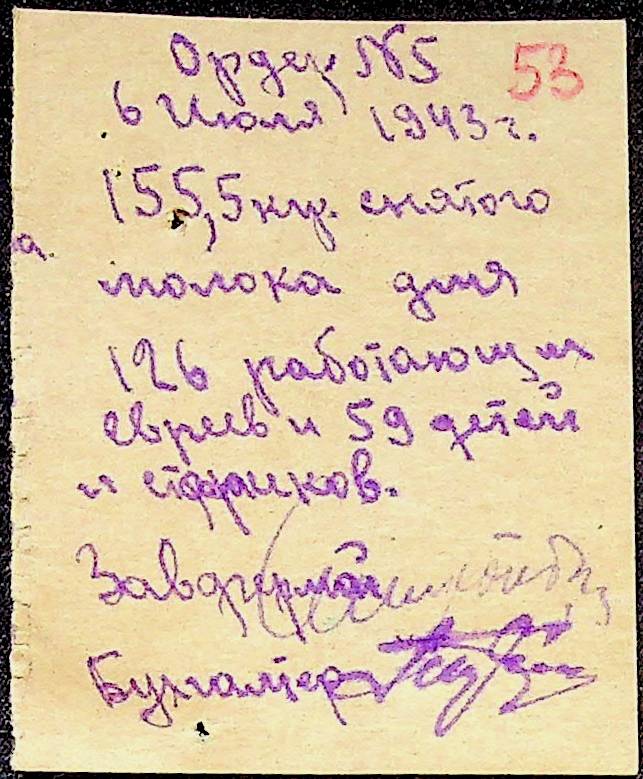 Ордер N5
53
6 Июля 1943 г.
155,5 кгр. снятого
а.
молока для
126 работающих
евреев и 59 детей
и стариков.
Завфермой
Бухгалтер